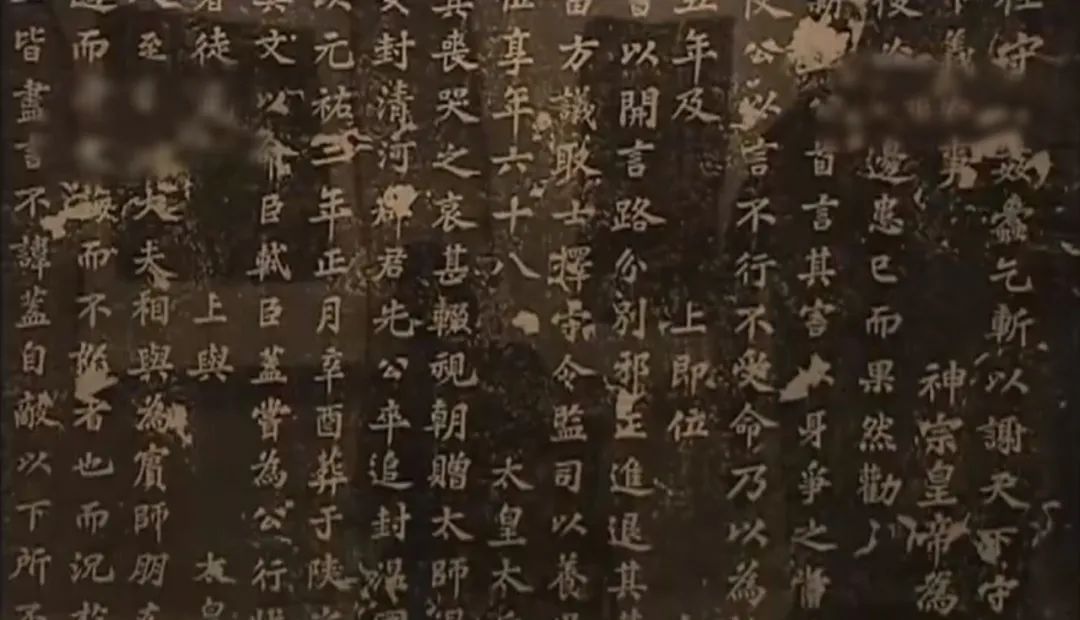 守姦蠹乞斬以謝天下守
義事 神宗皇帝為
邊患已而果然勸
首言其害以身爭之當
公以言不行不受命乃以為
五年及 上即位
以開言路分別邪正進退其
方議取士擇守令監司以養
位享年六十八 太皇太
其喪哭之哀甚輟視朝贈太師
女封清河郡君先公卒追封溫
以元祐二年正月辛酉葬于陝
其文以命臣軾臣蓋嘗為公行
徒 上與 太
至大夫相與為賓師朋
而而不者也而況
皆盡言不諱蓋自敵以下所